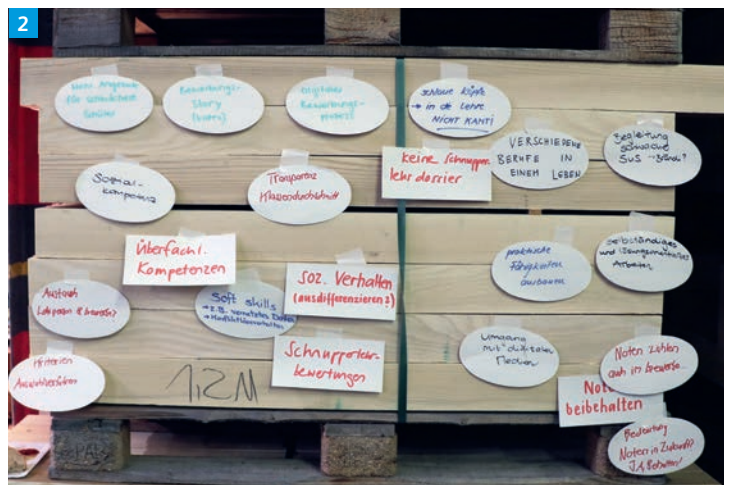 2
Mehr Angebote
für schwächere
Schüler
Bewerbungs-
Story
Digitaler
Bewerbungs-
prozess
schlaue Köpfe
→ in die Lehre
NICHT KANTI
VERSCHIEDENE
BERUFE IN
EINEM LEBEN
Begleitung
schwache
SuS
keine Schnupper
lehrdossier
Sozial-
kompetenz
Transparenz
Klassendurchschnitt
Überfachl.
Kompetenzen
Soz. Verhalten
(ausdifferenzieren?)
praktische
Fähigkeiten
ausbauen
selbständiges
und lösungsorientiertes
Arbeiten
Austausch
Lehrperson &
Soft skills
→ z.B. vernetztes Denken
→ Konfliktverhalten
Schnupperlehr-
bewertungen
Umgang
mit digitalen
Medien
Noten zählen
auch in
Kriterien
Auswahlverfahren
1,2 M
Not
beibehalten
Bedeutung
Noten in Zukunft?
EPAL